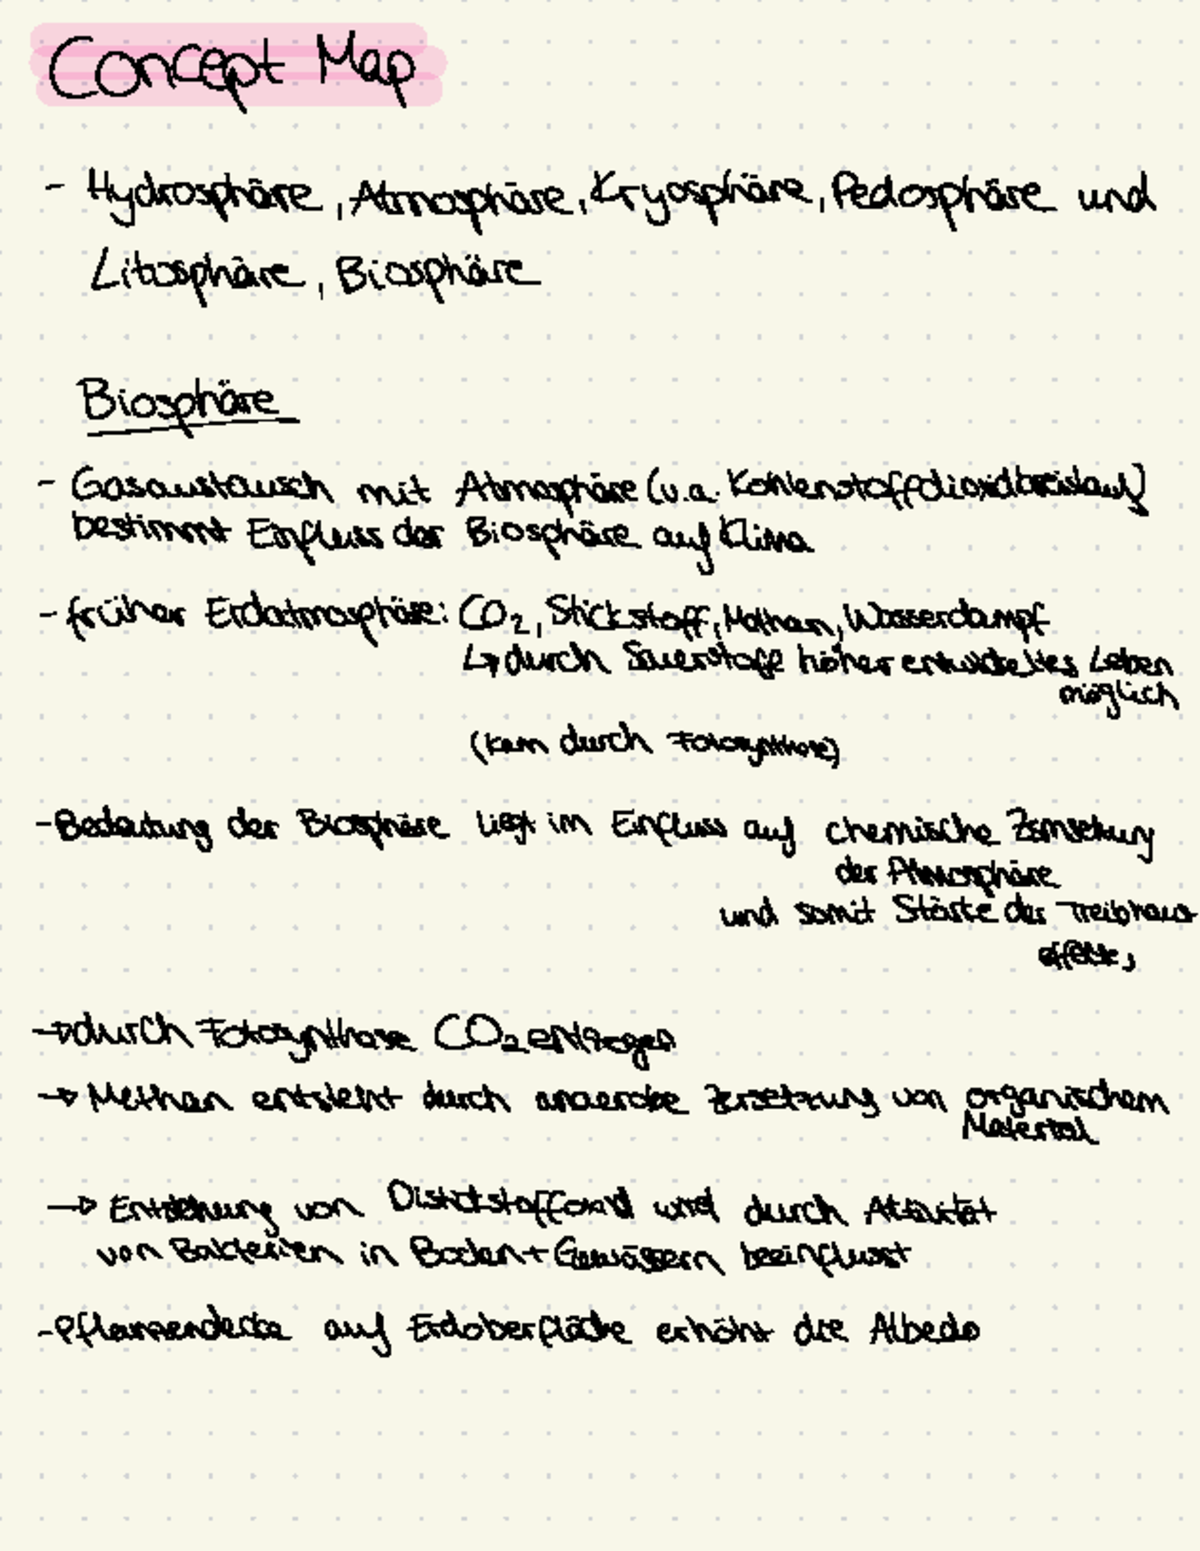 Concept Map
- Hydrosphäre, Atmosphäre, Kryosphäre, Pedosphäre und
Litosphäre, Biosphäre
Biosphäre
- Gasaustausch mit Atmosphäre (u.a. Kohlenstoffdioxidkreislauf)
bestimmt Einfluss der Biosphäre auf Klima
- früher Erdatmosphäre: CO₂, Stickstoff, Methan, Wasserdampf
↳ durch Sauerstoff höher entwickeltes Leben
möglich
(kam durch Fotosynthese)
- Bedeutung der Biosphäre liegt im Einfluss auf chemische
der Atmosphäre
und somit Stärke des Treibhaus
effekts,
→ durch Fotosynthese CO₂ entzogen
→ Methan entsteht durch anaerobe Zersetzung von organischem
Material
→ Entstehung von Distickstoffoxid wird durch Aktivität
von Bakterien in Boden + Gewässern beeinflusst
- Pflanzendecke auf Erdoberfläche erhöht die Albedo